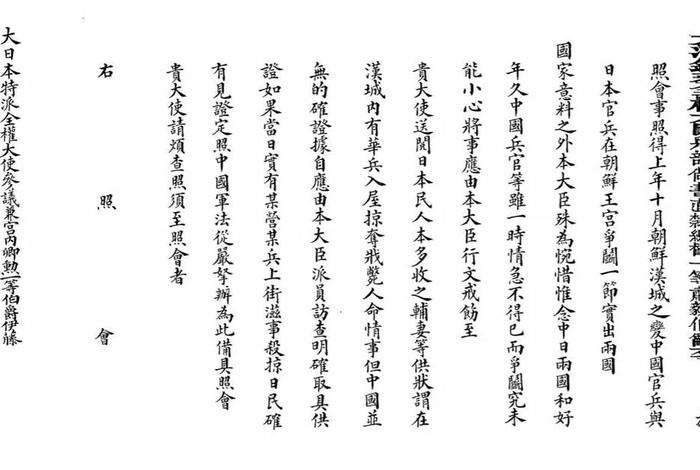 尚書直隸總督一等肅毅伯爵李
照會事照得上年十月朝鮮漢城之變中國官兵與
日本官兵在朝鮮王宮爭鬭一節實出兩國
國家意料之外本大臣殊為惋惜惟念中日兩國和好
年久中國兵官等雖一時情急不得已而爭鬭究未
能小心將事應由本大臣行文戒飭至
貴大使送閱日本民人本多收之輔妻等供狀謂在
漢城內有華兵入屋掠奪戕斃人命情事但中國並
無的確證據自應由本大臣派員訪查明確取具供
證如果當日實有某營某兵上街滋事殺掠日民確
有見證定照中國軍法從嚴拏辦為此備具照會
貴大使請煩查照須至照會者
右 照 會
大日本特派全權大使參議兼宮內卿勳一等伯爵伊藤